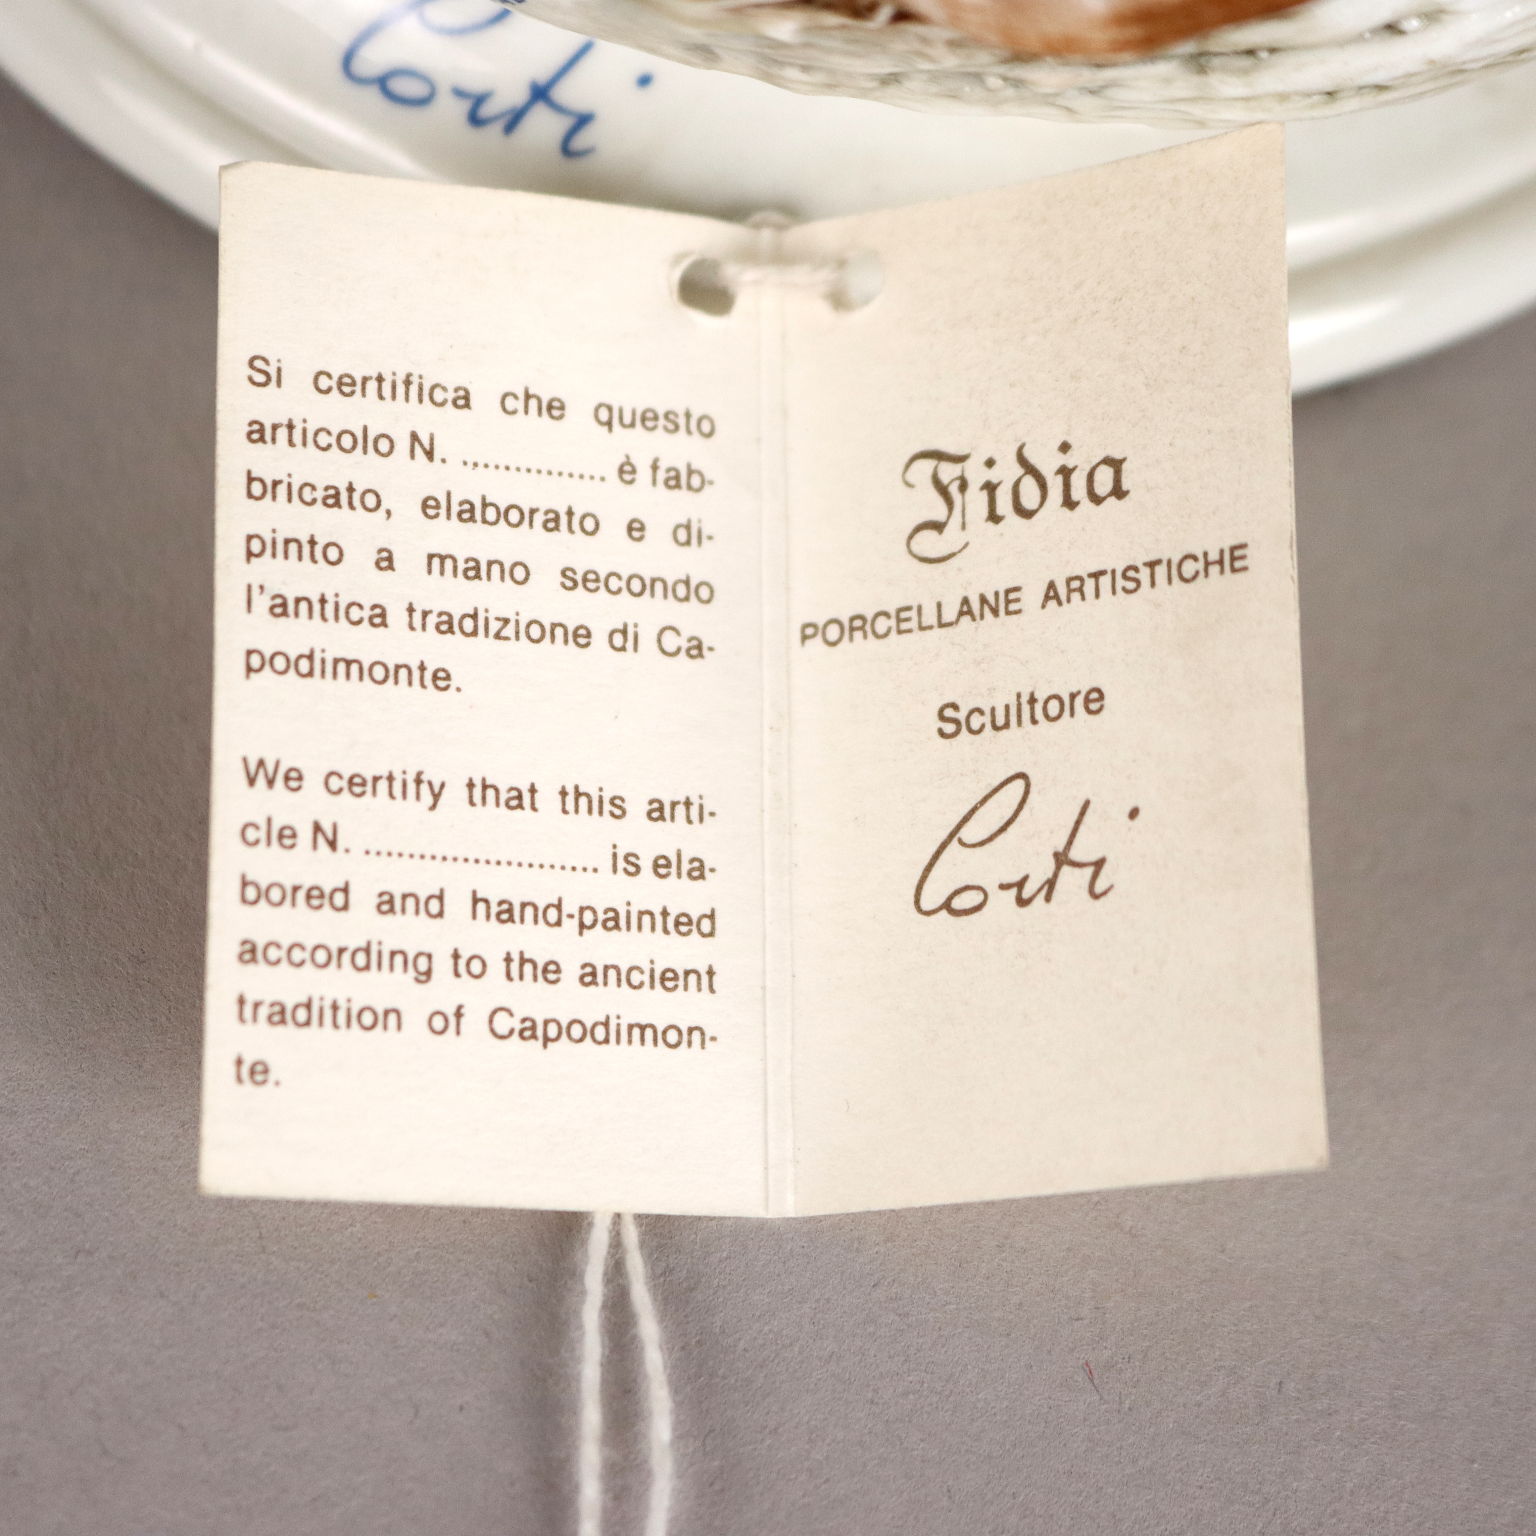 Corti
Si certifica che questo
articolo N. ............... è fab-
bricato, elaborato e di-
pinto a mano secondo
l'antica tradizione di Ca-
podimonte.
We certify that this arti-
cle N. ........................ is ela-
bored and hand-painted
according to the ancient
tradition of Capodimon-
te.
Fidia
PORCELLANE ARTISTICHE
Scultore
Corti